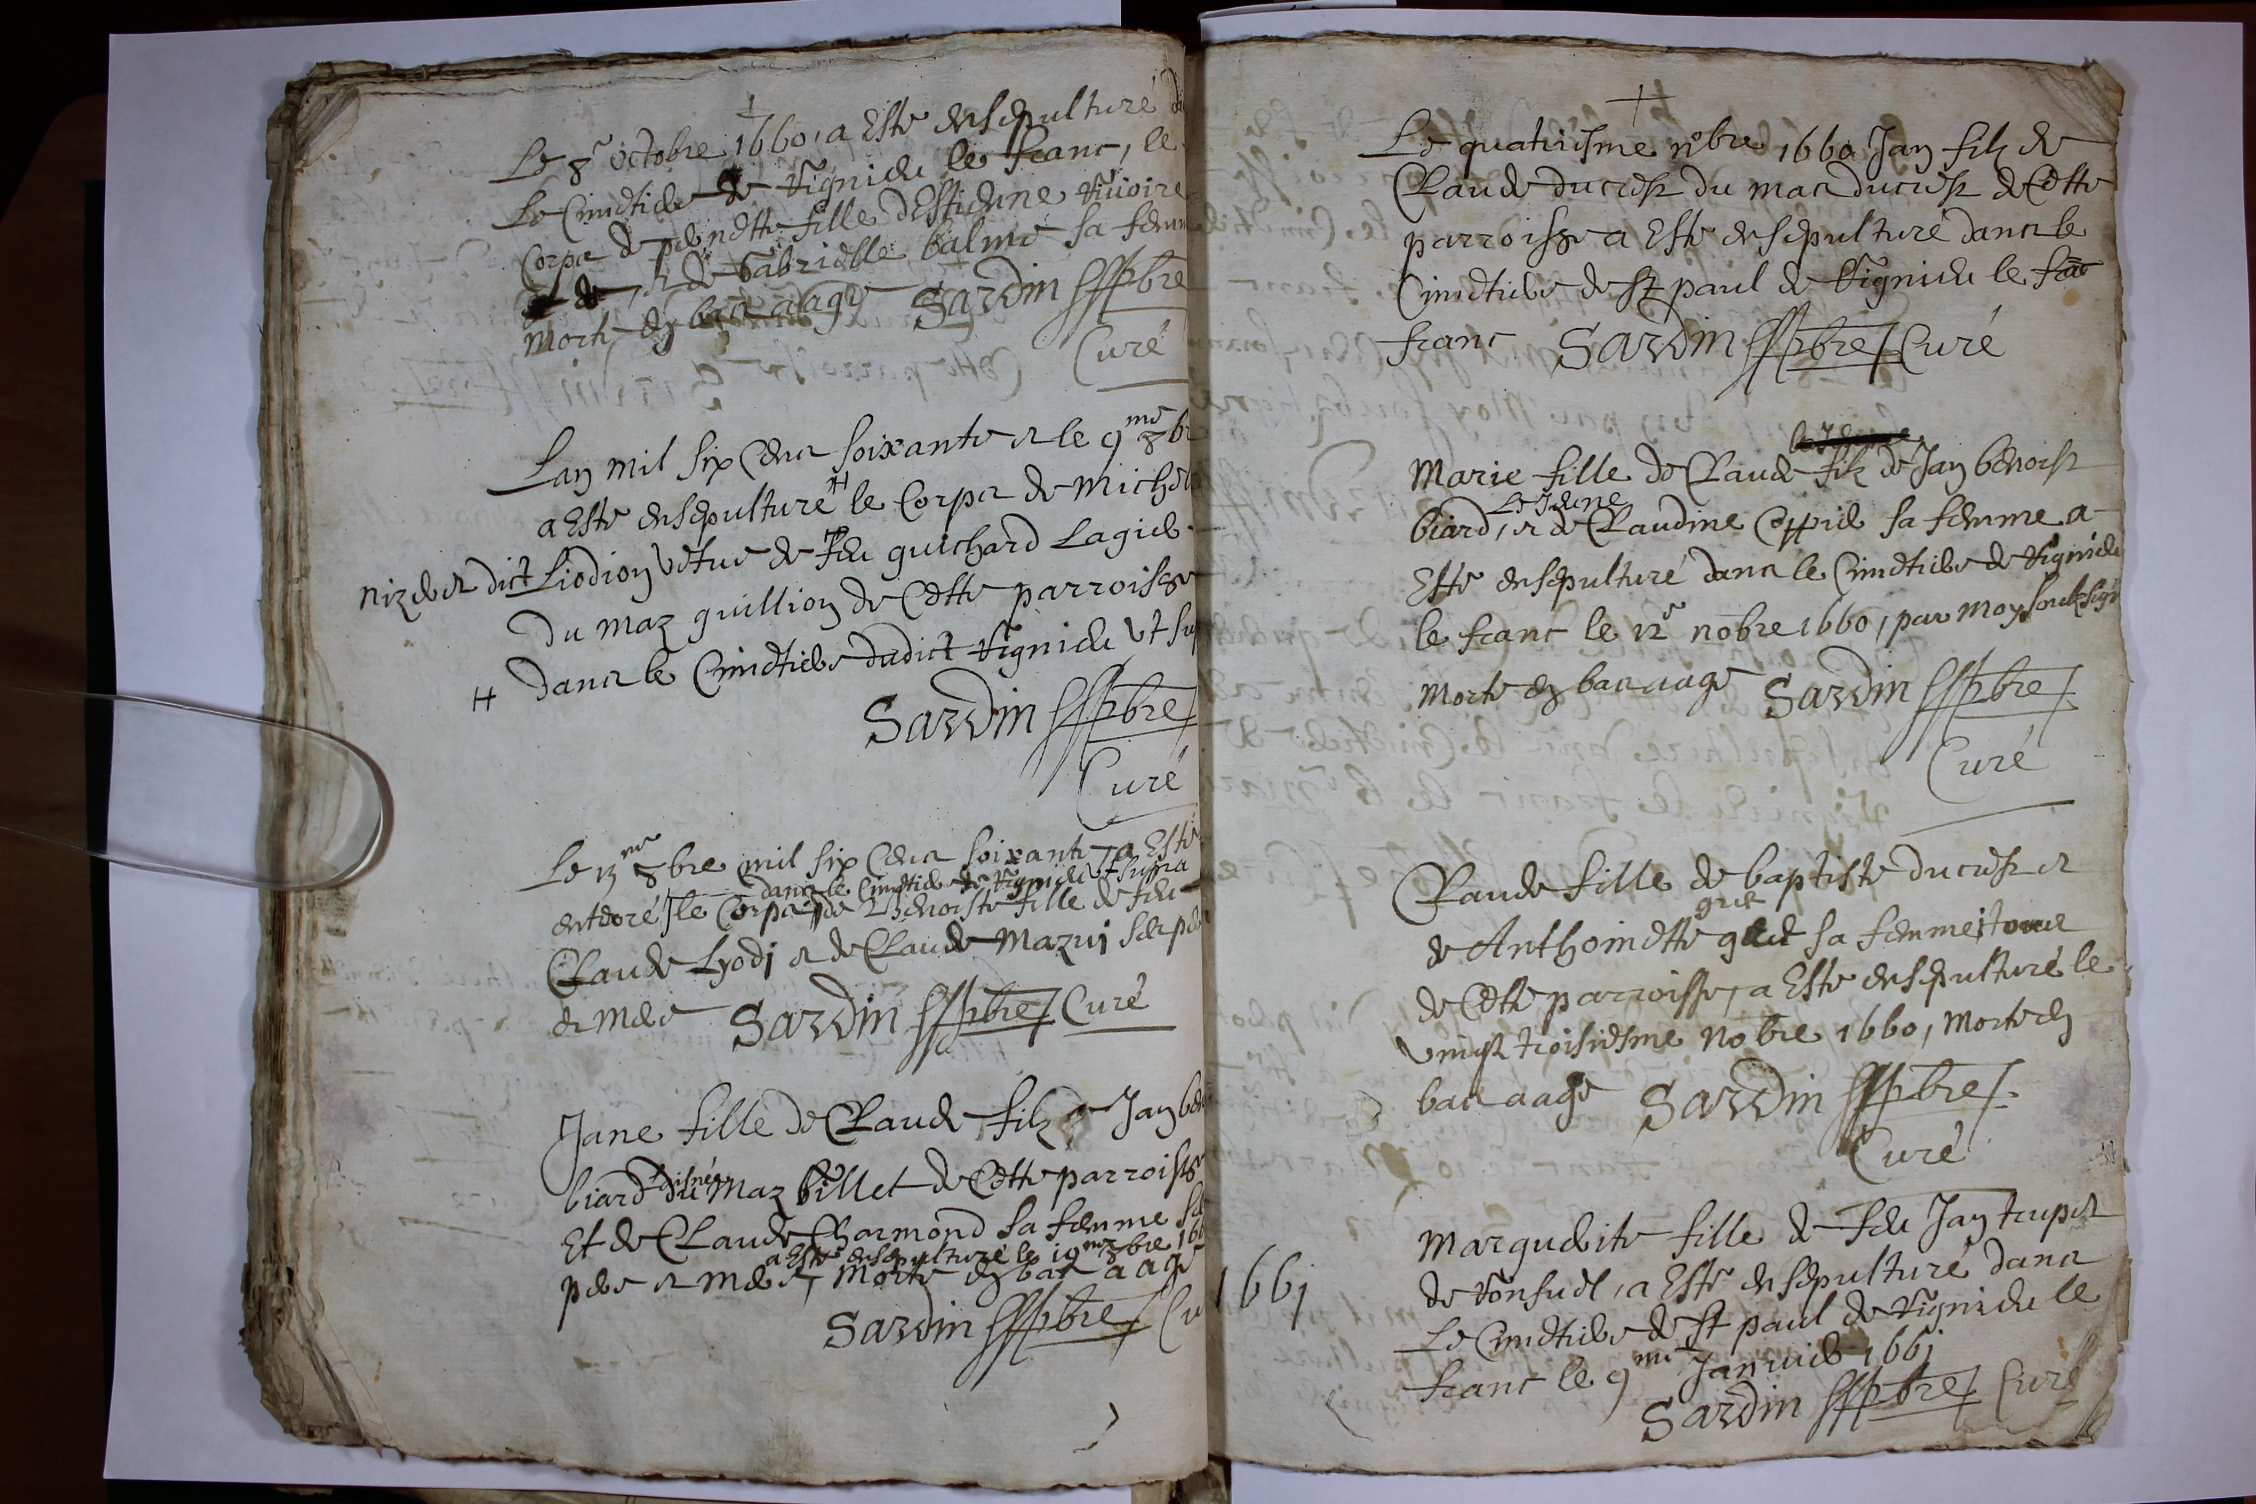 Le 8e octobre 1660, a Esté ensepulturé da
Le Cimetiere de Vignieu le franc, le
Corps de pernette fille dEstienne Vivoire
et de Gabrielle balme sa femm
Morte en bas aage Sardin pbre
Curé
Lan mil six Cens soixante et le 9me 8br
a Esté ensepulturé H le Corps de Michel
nizier dict Liodion vefve de feu guichard Lagier
Du maz guillion de Cette parroisse
H dans le Cimetiere dudict Vignieu Vt sup
Sardin pbre
Curé
Le 13me 8bre mil six Cens soixante, a Esté
dans le Cimetiere de Vignieu Vt supra
enterré le Corps de benoiste fille de feu
Claude Lyodj et de Claude Mazuj ses per
et Mere Sardin pbre Curé
Jane fille de Claude filz de Jan ben
biard laisné du Maz billet de Cette parroisse
Et de Claude Charmond sa femme se
a Esté ensepulturé le 19me 8bre 166
pere et mere, Morte en bas aage
Sardin pbre Cu
Le quatriesme nobre 1660 Jan filz de
Claude ducrest du mas ducrest de Cette
parroisse a Esté ensepulturé dans le
Cimetiere de st paul de Vignieu le frac
franc Sardin pbre Curé
Marie fille de Claude filz de Jan benoist
le Jeune
biard, et de Claudine sa femme a
Esté ensepulturé dans le Cimetiere de Vignieu
le franc le 12e nobre 1660, par moy soubzsigné
Morte en bas aage Sardin pbre
Curé
Claude fille de baptiste ducrest et
de Anthoinette sa femme tous
de Cette parroisse, a Esté ensepulturé le
vingt troisiesme Nobre 1660, Morte en
bas aage Sardin pbre
Curé
Marguerite fille de feu Jan trupet
de Vonsuel, a Esté ensepulturé dans
1661
Le Cimetiere de st paul de Vignieu le
franc le 9me Janvier 1661
Sardin pbre Curé